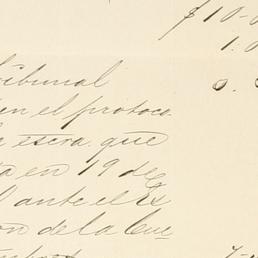 $10-0
1.0
Tribunal
0.
en el protoco
a escra. que
ta en 19 de
ante el Es
on de la Cue-